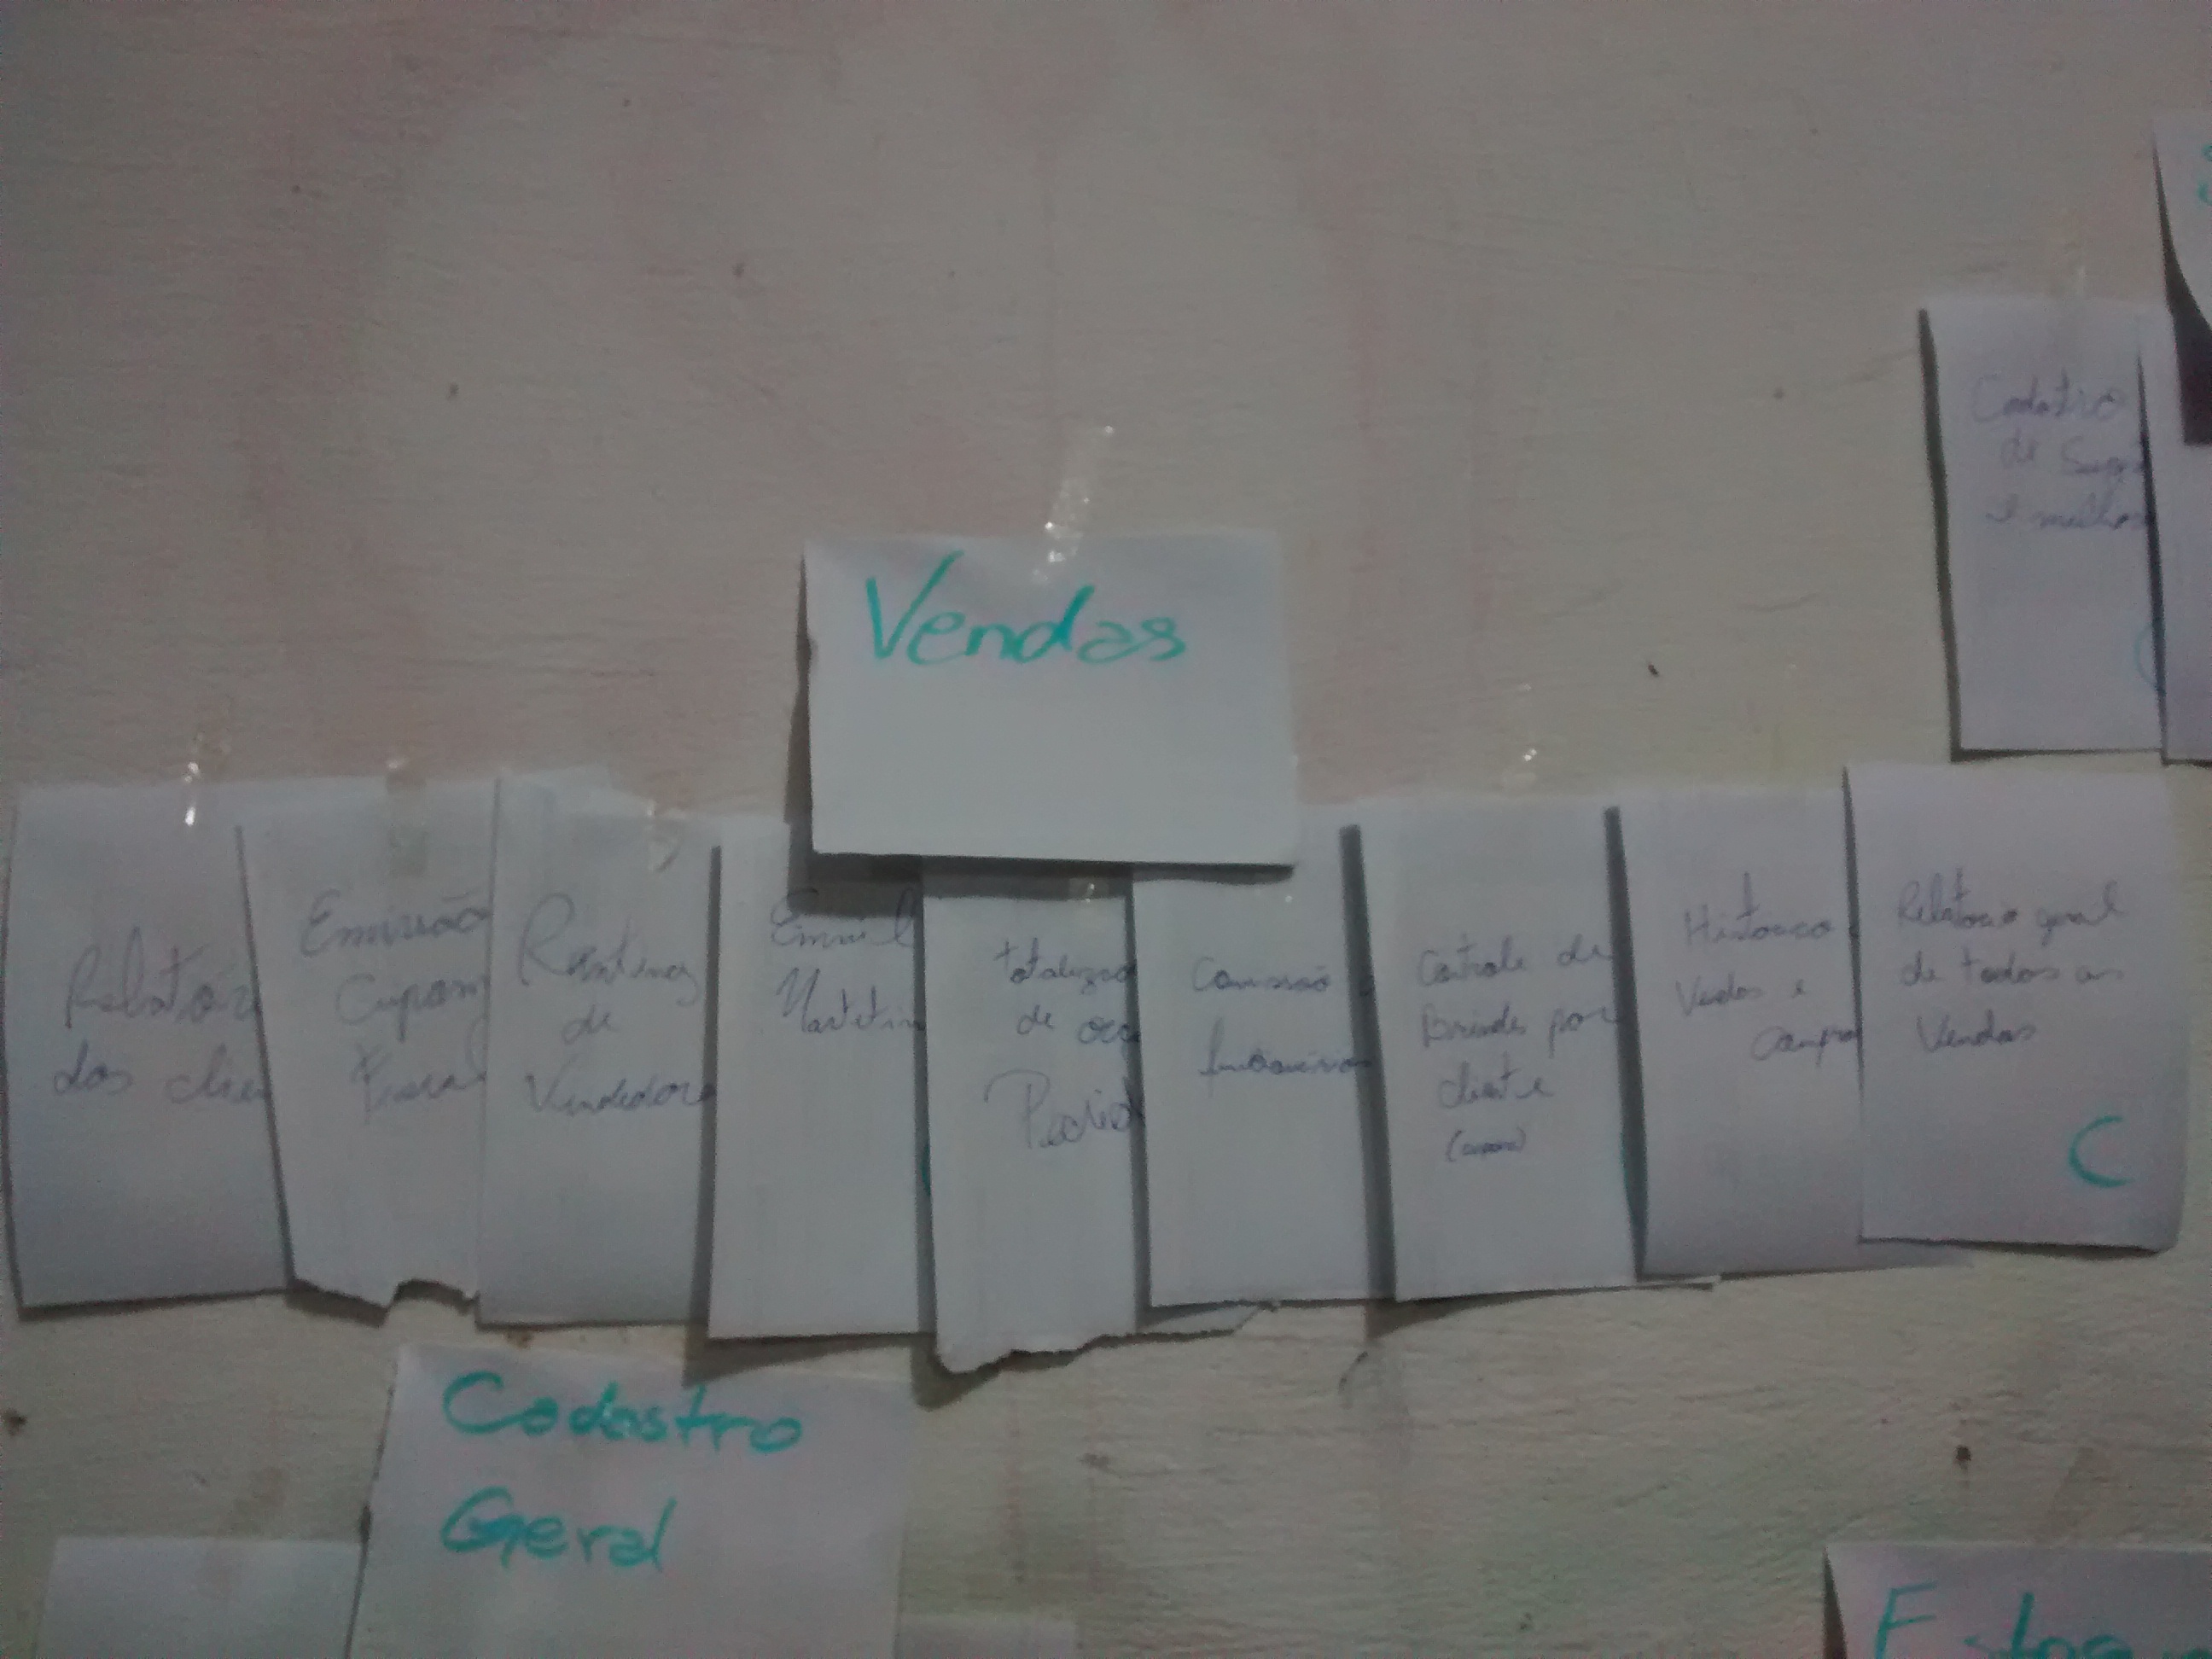 Vendas
Cadastro
de
e
Relator
dos clien
Emissão
Cupom
Fiscal
Ranking
de
Vendedore
Email
Marketin
totalizad
de
Pedid
Comissão
funcionários
Controle de
Brinde por
cliente
Historico
Vendas e
compra
Relatorio geral
de todas as
Vendas
C
Cadastro
Geral